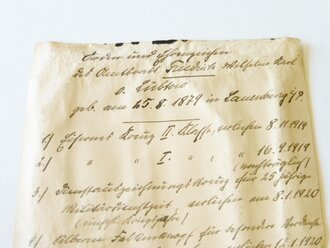 Orden und Ehrenzeichen
des Friedrich Wilhelm Karl
v. Lützow
geb. am 25.8.1879 in Lauenburg
1) Eisernes Kreuz II. Klasse, verliehen 8.11.1914
2) " " I. " " 16.9.1919
(nachträglich)
3.) Dienstauszeichnungskreuz für 25 jährige
Militärdienstzeit, verliehen am 8.1.1920
4.) Silberner für besondere
1920